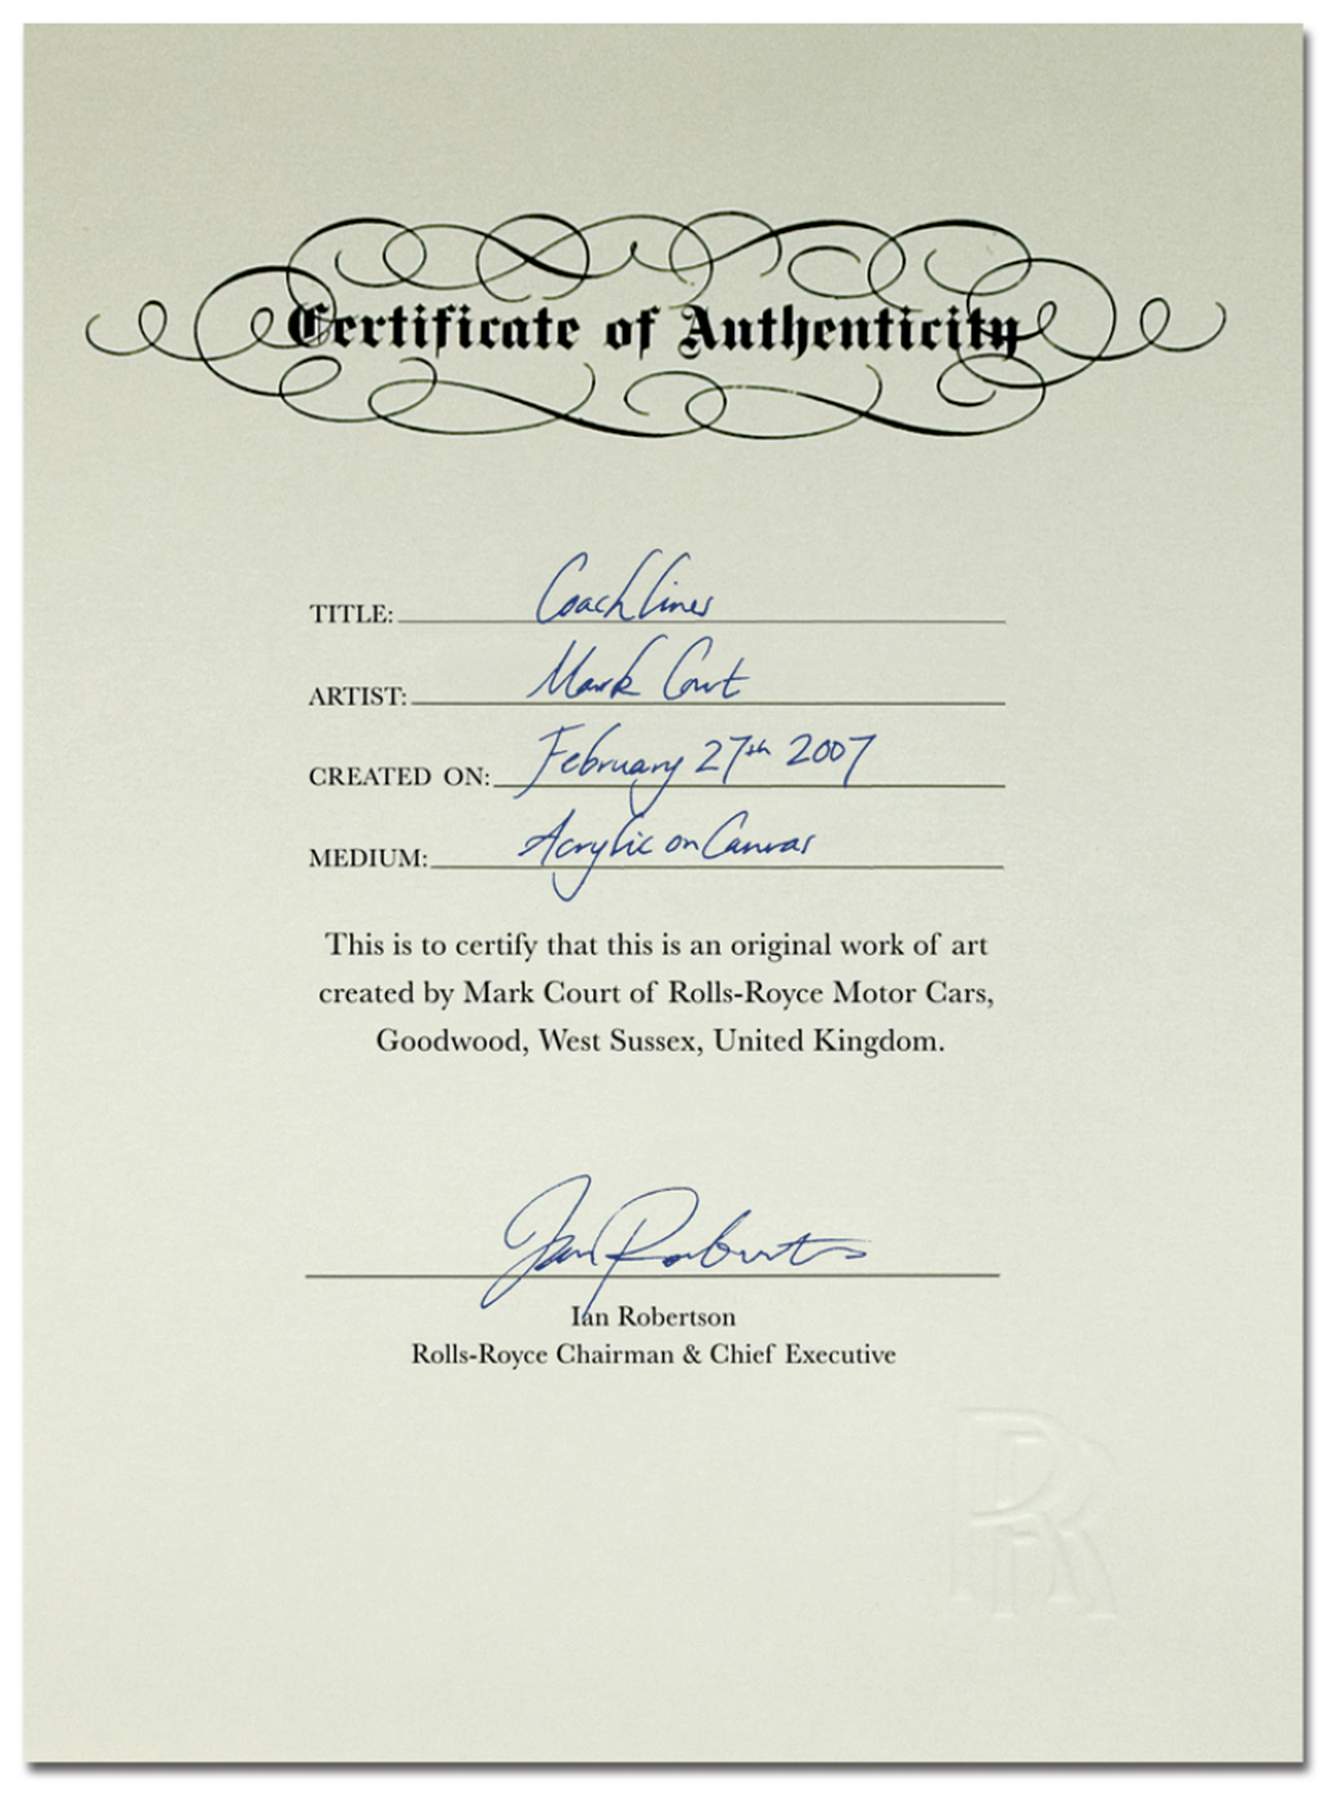 Certificate of Authenticity
TITLE: Coachlines
ARTIST: Mark Court
CREATED ON: February 27th 2007
MEDIUM: Acrylic on Canvas
This is to certify that this is an original work of art
created by Mark Court of Rolls-Royce Motor Cars,
Goodwood, West Sussex, United Kingdom.
Ian Robertson
Ian Robertson
Rolls-Royce Chairman & Chief Executive
RR